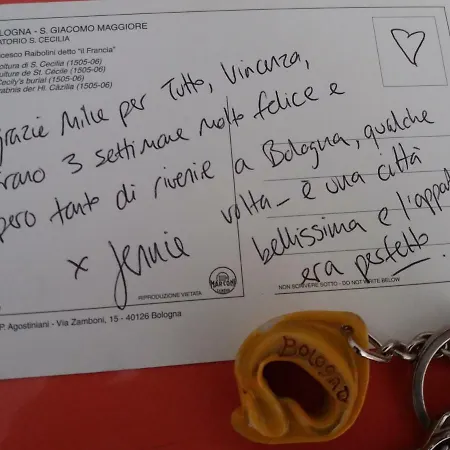 OLOGNA - S. GIACOMO MAGGIORE
ATORIO S. CECILIA
ncesco Raibolini detto "il Francia"
oltura di S. Cecilia (1505-06)
ulture de St. Cécile (1505-06)
Cecily's burial (1505-06)
rabnis der Hl. Cäzilia (1505-06)
grazie Mille per Tutto, Vincenza,
rano 3 settimane molto felice e
pero tanto di rivenire a Bologna, qualche
volta - è una città
bellissima e l'appa
era perfetto.
x Jennie
RIPRODUZIONE VIETATA
NON SCRIVERE SOTTO - DO NOT WRITE BELOW
P. Agostiniani - Via Zamboni, 15 - 40126 Bologna
BOLOGNA